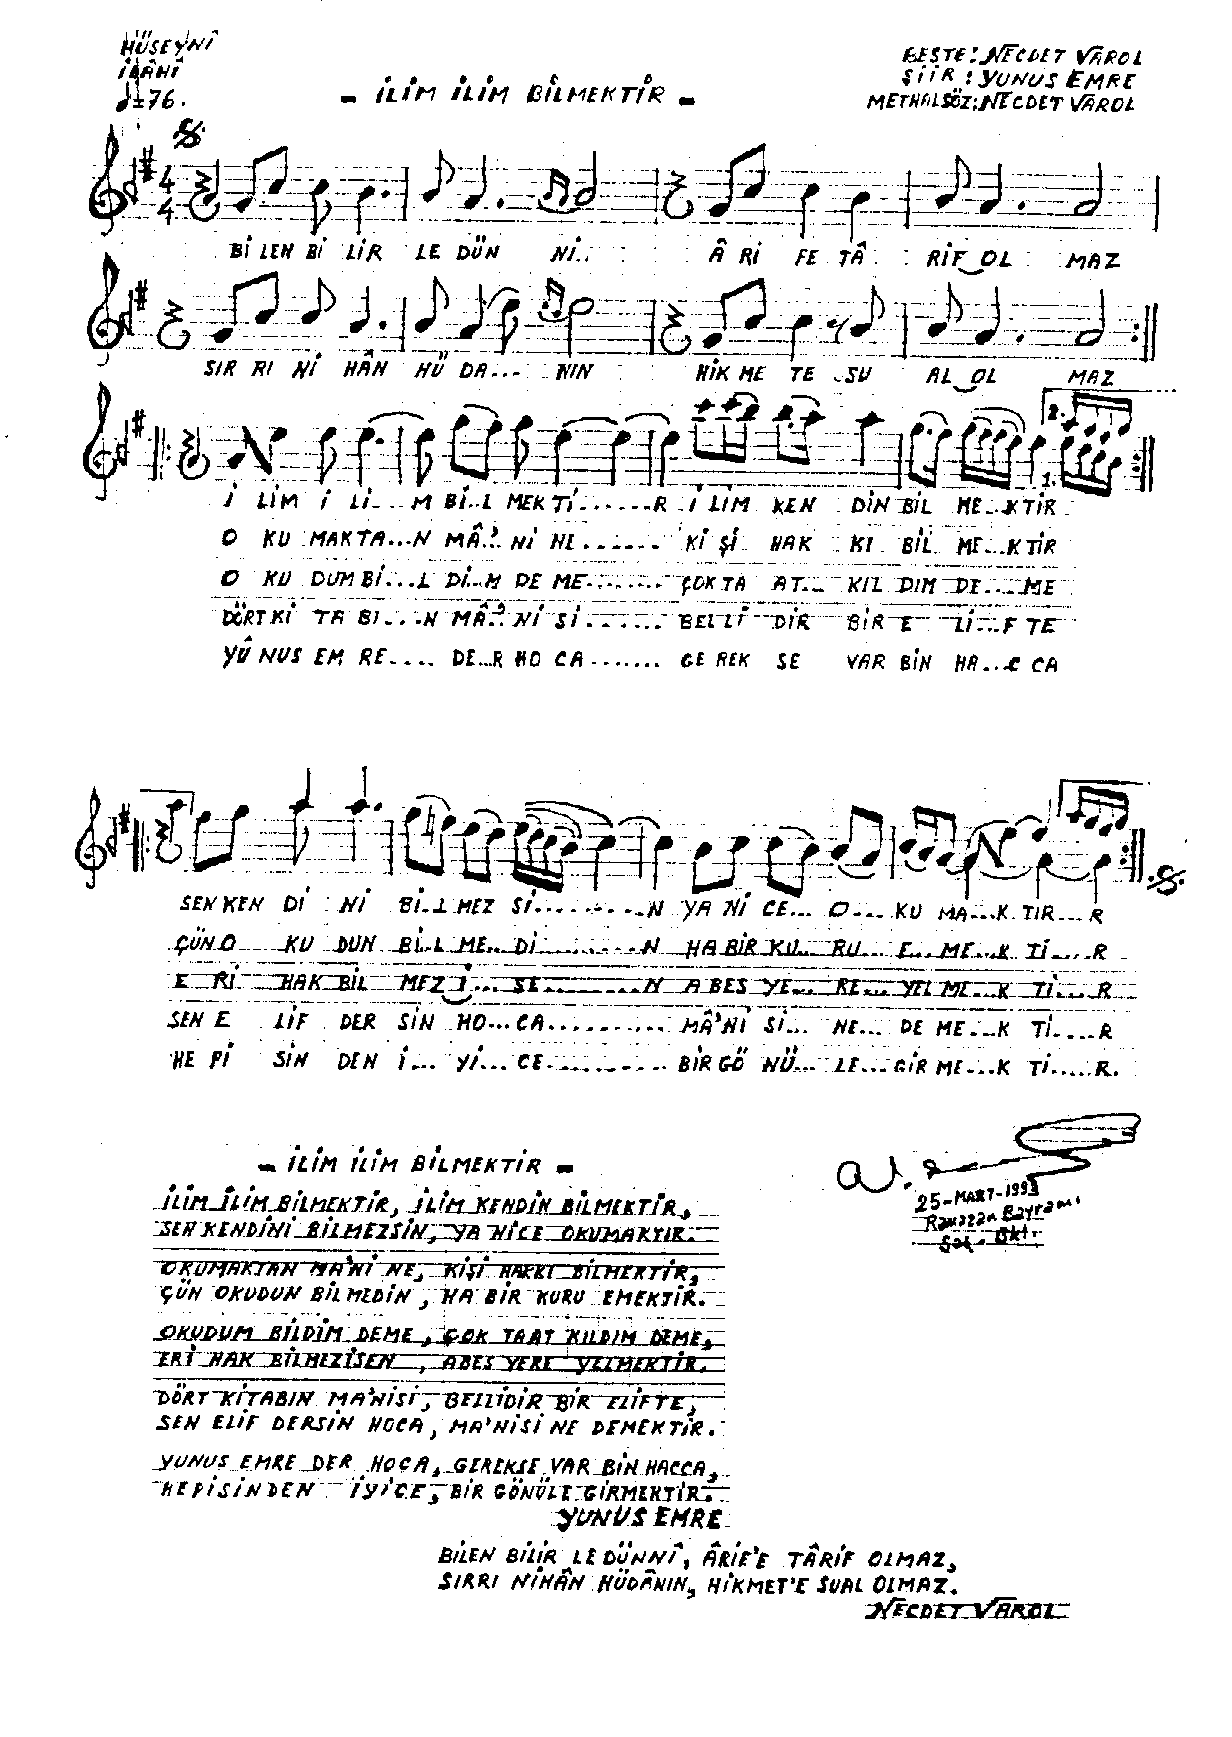 HÜSEYNÎ
İLÂHÎ
♩=76.
- İLİM İLİM BİLMEKTİR -
BESTE: NECDET VAROL
ŞİİR: YUNUS EMRE
METHALSÖZ: NECDET VAROL
BİLEN BİLİR LE DÜN Nİ.. Â Rİ FE TÂ RİF OL MAZ
SIR RI Nİ HÂN HÜ DA... NIN HİK ME TE SU AL OL MAZ
2.
1.
İ LİM İ Lİ... M Bİ..L MEK Tİ......R İ LİM KEN DİN BİL ME...K TİR
O KU MAK TA...N MÂ.' Nİ NE....... KİŞİ HAK KI BİL ME...K TİR
O KU DUM Bİ...L Dİ..M DE ME........ ÇOK TA AT... KIL DIM DE....ME
DÖRT Kİ TA BI...N MÂ.' Nİ Sİ....... BEL Lİ DİR BİR E Lİ...F TE
YÛ NUS EM RE.... DE..R HO CA....... GE REK SE VAR BİN HA...C CA
SEN KEN Dİ Nİ Bİ..L MEZ Sİ.........N YA Nİ CE... O.... KU MA...K TIR...R
ÇÜN O KU DUN Bİ..L ME.. Dİ.........N HA BİR KU.. RU.. E... ME...K Tİ.....R
E Rİ HAK BİL MEZ İ... SE..........N A BES YE... RE... YEL ME...K Tİ....R
SEN E LİF DER SİN HO...CA.......... MÂ'Nİ Sİ... NE... DE ME...K Tİ....R
HE Pİ SİN DEN İ... Yİ... CE.......... BİR GÖ NÜ... LE... GİR ME...K Tİ.....R.
- İLİM İLİM BİLMEKTİR -
İLİM İLİM BİLMEKTİR, İLİM KENDİN BİLMEKTİR,
SEN KENDİNİ BİLMEZSİN, YA NİCE OKUMAKTIR.
OKUMAKTAN MA'Nİ NE, KİŞİ HAKKI BİLMEKTİR,
ÇÜN OKUDUN BİLMEDİN, HA BİR KURU EMEKTİR.
OKUDUM BİLDİM DEME, ÇOK TAAT KILDIM DEME,
ERİ HAK BİLMEZİSEN, ABES YERE YELMEKTİR.
DÖRT KİTABIN MA'NİSİ, BELLİDİR BİR ELİFTE,
SEN ELİF DERSİN HOCA, MA'NİSİ NE DEMEKTİR.
YUNUS EMRE DER HOCA, GEREKSE VAR BİN HACCA,
HEPİSİNDEN İYİCE, BİR GÖNÜLE GİRMEKTİR.
YUNUS EMRE
25-MART-1993
Ramazan Bayramı
BİLEN BİLİR LEDÜNNÎ, ÂRİF'E TÂRİF OLMAZ,
SIRRI NİHÂN HÜDÂNIN, HİKMET'E SUAL OLMAZ.
NECDET VAROL